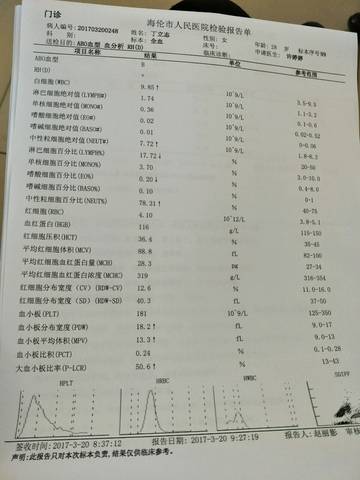 门诊
海伦市人民医院检验报告单
病人编号:201703200248 姓名: 丁立志 性别: 女 年龄: 28 岁 标本序号99
科 别: 标本: 全血 床号: 申请医生: 许婷婷
送检目的:ABO血型 血分析 RH(D) 临床诊断:
项目名称 结果 单位 参考范围
ABO血型 B
RH(D) +
白细胞(WBC) 9.85↑ 10^9/L 3.5-9.5
淋巴细胞绝对值(LYMPH#) 1.74 10^9/L 1.1-3.2
单核细胞绝对值(MONO#) 0.36 10^9/L 0.1-0.6
嗜酸细胞绝对值(EO#) 0.02 10^9/L 0.02-0.52
嗜碱细胞绝对值(BASO#) 0.01 10^9/L 0-0.06
中性粒细胞绝对值(NEUT#) 7.72↑ 10^9/L 1.8-6.3
淋巴细胞百分比(LYMPH%) 17.72↓ % 20-50
单核细胞百分比(MONO%) 3.70 % 3.0-10.0
嗜酸细胞百分比(EO%) 0.20↓ % 0.4-8.0
嗜碱细胞百分比(BASO%) 0.10 % 0-1
中性粒细胞百分比(NEUT%) 78.21↑ % 40-75
红细胞(RBC) 4.10 10^12/L 3.8-5.1
血红蛋白(HGB) 116 g/L 115-150
红细胞压积(HCT) 36.4 % 35-45
平均红细胞体积(MCV) 88.8 fL 82-100
平均红细胞血红蛋白量(MCH) 28.3 pg 27-34
平均红细胞血红蛋白浓度(MCHC) 319 g/L 316-354
红细胞分布宽度(CV)(RDW-CV) 12.6 % 11.0-16.0
红细胞分布宽度(SD)(RDW-SD) 40.3 fL 37-50
血小板(PLT) 181 10^9/L 125-350
血小板分布宽度(PDW) 18.2↑ fL 9.0-17
血小板平均体积(MPV) 13.3↑ fL 9.0-13
血小板压积(PCT) 0.24 % 0.1-0.28
大血小板比率(P-LCR) 50.6↑ % 13-43
HPLT HRBC HWBC
签收时间:2017-3-20 8:37:12 报告日期: 2017-3-20 9:27:19 报告人: 赵丽影 审核
声明:此报告只对本次标本负责,结果仅供临床参考。